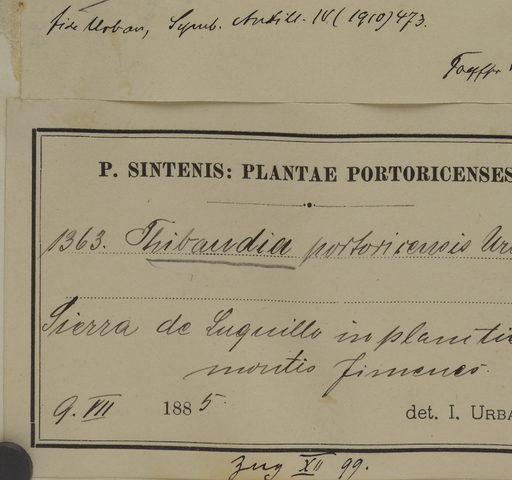 fide Urban, Symb. Antill. IV (1910) 473.
P. SINTENIS: PLANTAE PORTORICENSES
1363. Thibaudia portoricensis Ur
Sierra de Luquillo in planitie
montis Jimenes.
9. VII 1885. det. I. URBA
Zug XII 99.